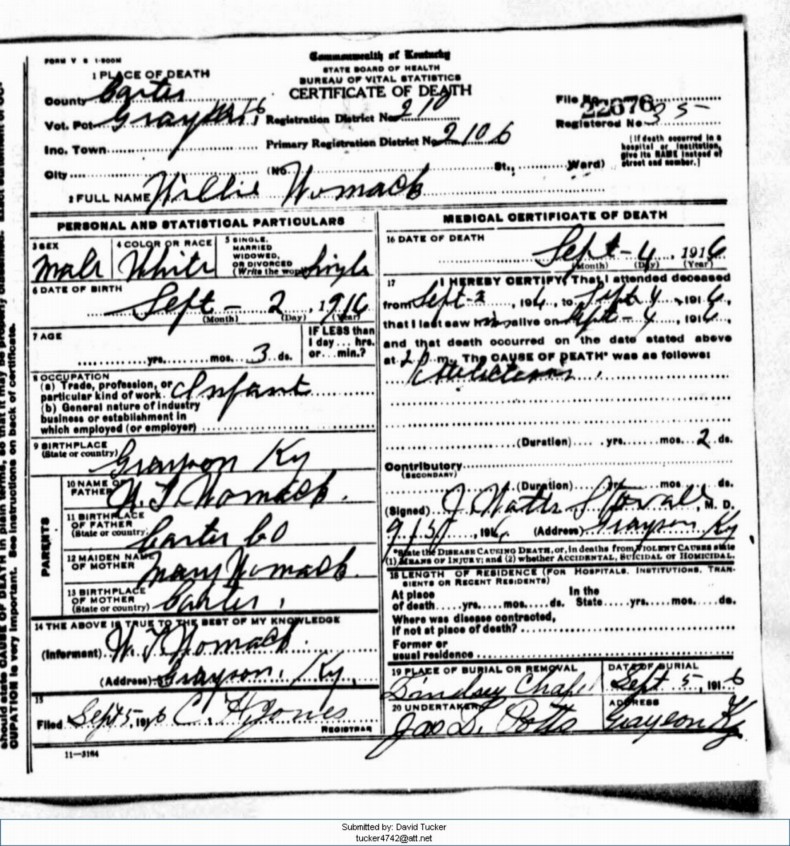 FORM V S 1-500M
Commonwealth of Kentucky
STATE BOARD OF HEALTH
BUREAU OF VITAL STATISTICS
CERTIFICATE OF DEATH
1 PLACE OF DEATH
County Carter
Vot. Pct. Grayson
Inc. Town
City
Registration District No. 210
Primary Registration District No. 2106
File No. 22676
Registered No. 35
(If death occurred in a hospital or institution, give its NAME instead of street and number.)
(No. St., Ward)
2 FULL NAME Willie Womack
PERSONAL AND STATISTICAL PARTICULARS
3 SEX Male
4 COLOR OR RACE White
5 SINGLE, MARRIED WIDOWED, OR DIVORCED (Write the word) Single
6 DATE OF BIRTH
Sept - 2, 1916
(Month) (Day) (Year)
7 AGE
yrs. mos. 3 ds.
IF LESS than 1 day hrs. or min.?
8 OCCUPATION
(a) Trade, profession, or particular kind of work Infant
(b) General nature of industry business or establishment in which employed (or employer)
9 BIRTHPLACE (State or country) Grayson Ky
PARENTS
10 NAME OF FATHER W. T. Womack
11 BIRTHPLACE OF FATHER (State or country) Carter Co
12 MAIDEN NAME OF MOTHER Mary Womack
13 BIRTHPLACE OF MOTHER (State or country) Carter
14 THE ABOVE IS TRUE TO THE BEST OF MY KNOWLEDGE
(Informant) W. T. Womack
(Address) Grayson, Ky.
15
Filed Sept 5, 1916 C. H. Jones
REGISTRAR
11-3184
MEDICAL CERTIFICATE OF DEATH
16 DATE OF DEATH
Sept - 4, 1916
(Month) (Day) (Year)
17 I HEREBY CERTIFY, That I attended deceased
from Sept - 2, 1916, to Sept 4, 1916,
that I last saw him alive on Sept - 4, 1916,
and that death occurred on the date stated above
at 2 P m. The CAUSE OF DEATH* was as follows:
(Duration) yrs. mos. 2 ds.
Contributory
(SECONDARY)
(Duration) yrs. mos. ds.
(Signed) J. Watts Stovall, M. D.
1916 (Address) Grayson Ky
*State the DISEASE CAUSING DEATH, or, in deaths from VIOLENT CAUSES state (1) MEANS OF INJURY; and (2) whether ACCIDENTAL, SUICIDAL OR HOMICIDAL.
18 LENGTH OF RESIDENCE (FOR HOSPITALS, INSTITUTIONS, TRANSIENTS OR RECENT RESIDENTS)
At place of death yrs. mos. ds. In the State yrs. mos. ds.
Where was disease contracted, if not at place of death?
Former or usual residence
19 PLACE OF BURIAL OR REMOVAL
Lindsey Chapel
DATE OF BURIAL
Sept 5, 1916
20 UNDERTAKER
Jas L. Potts
ADDRESS
Grayson Ky
Submitted by: David Tucker
tucker4742@att.net